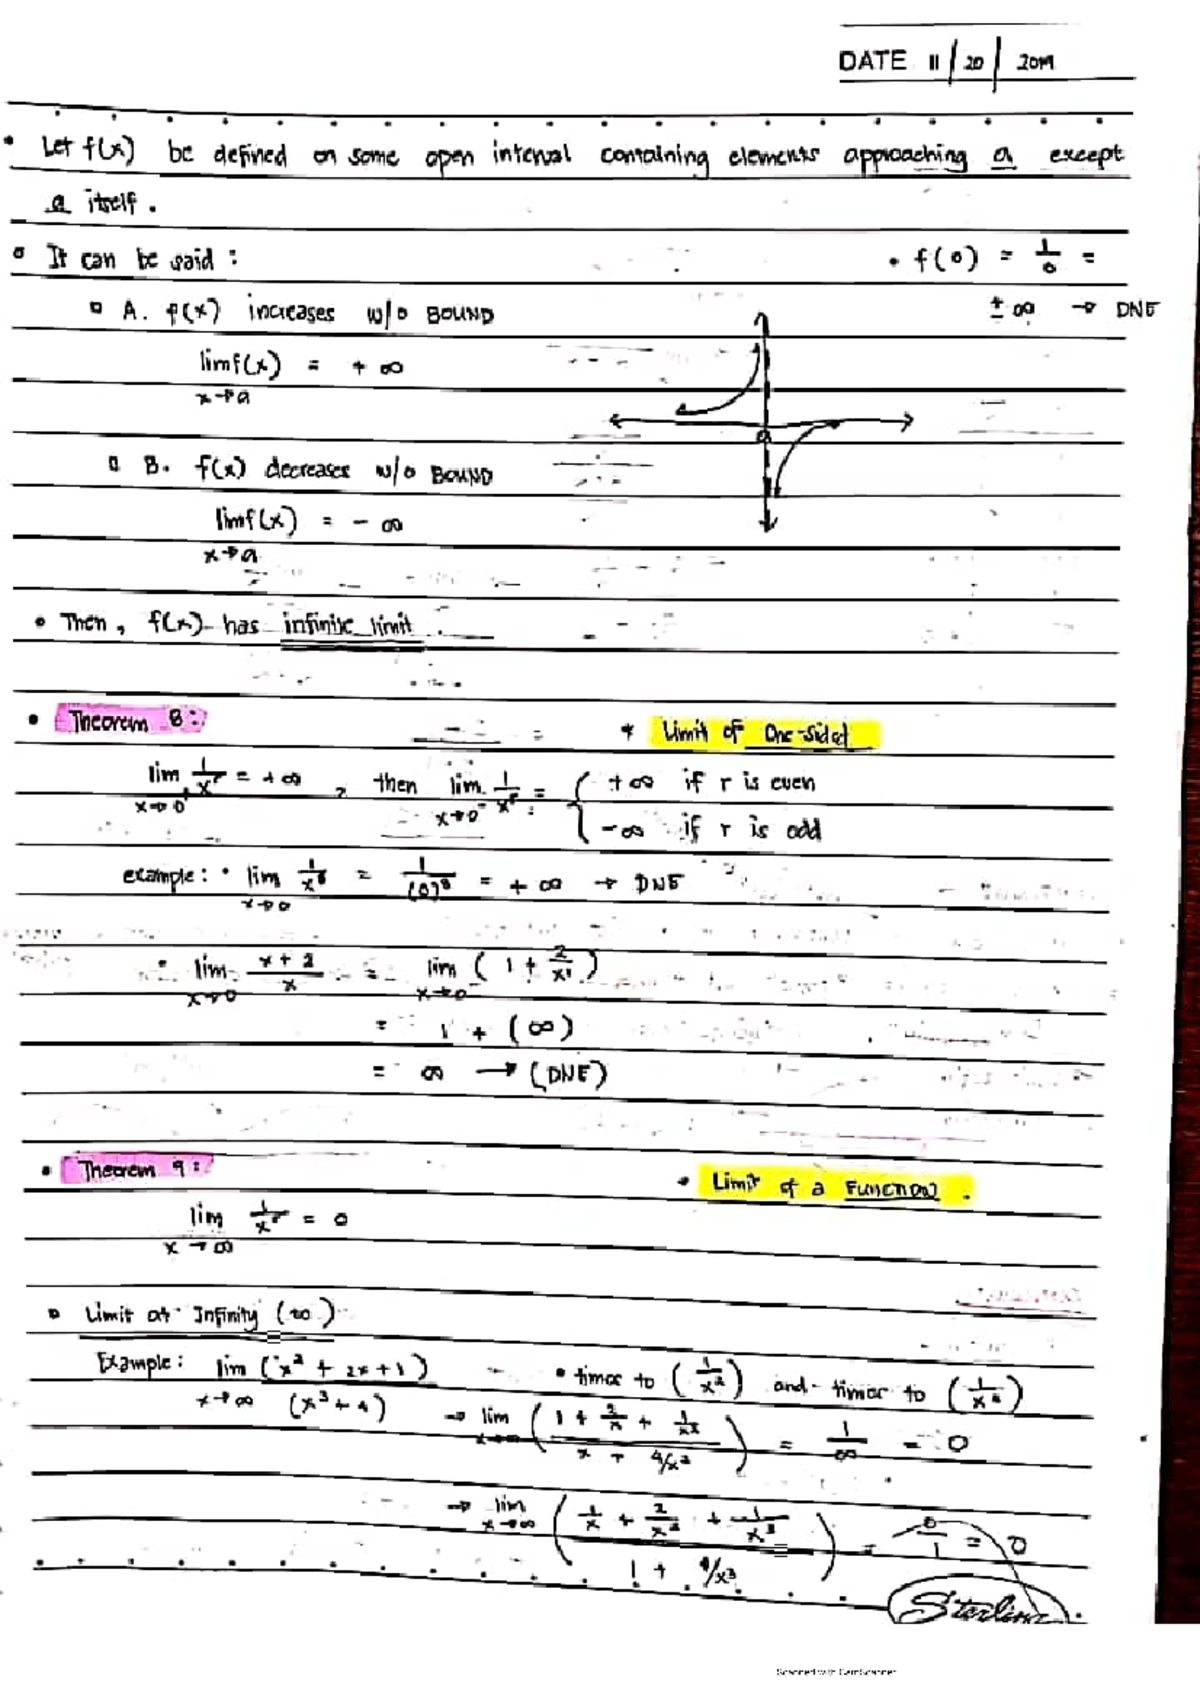 DATE 11 / 20 / 2019
• Let f(x) be defined on some open interval containing elements approaching a except
a itself.
• It can be said :
• f(0) = 1/0 =
± ∞ → DNE
▫ A. f(x) increases w/o BOUND
lim f(x) = + ∞
x→a
a
▫ B. f(x) decreases w/o BOUND
lim f(x) = - ∞
x→a
• Then, f(x) has infinite limit
• Theorem 8:
* Limit of One-sided
lim 1/x^r = +∞, then lim 1/x^r = { +∞ if r is even
x→0⁺ x→0⁻ { -∞ if r is odd
example: • lim 1/x⁸ = 1/(0)⁸ = + ∞ → DNE
x→0
• lim x + 2 / x = lim ( 1 + 2/x )
x→0 x→0
= 1 + (∞)
= ∞ → (DNE)
• Theorem 9:
• Limit of a FUNCTION.
lim 1/x^r = 0
x → ∞
▫ Limit at Infinity (∞)
Example: lim (x² + 2x + 1)
x→∞ (x³ + 4)
• times to (1/x²) and times to (1/x³)
→ lim ( 1 + 2/x + 1/x² / x + 4/x² ) = 1/∞ = 0
x→∞
→ lim ( 1/x + 2/x² + 1/x³ / 1 + 4/x³ ) = 0/1 = 0
x→∞
Sterling
Scanned with CamScanner